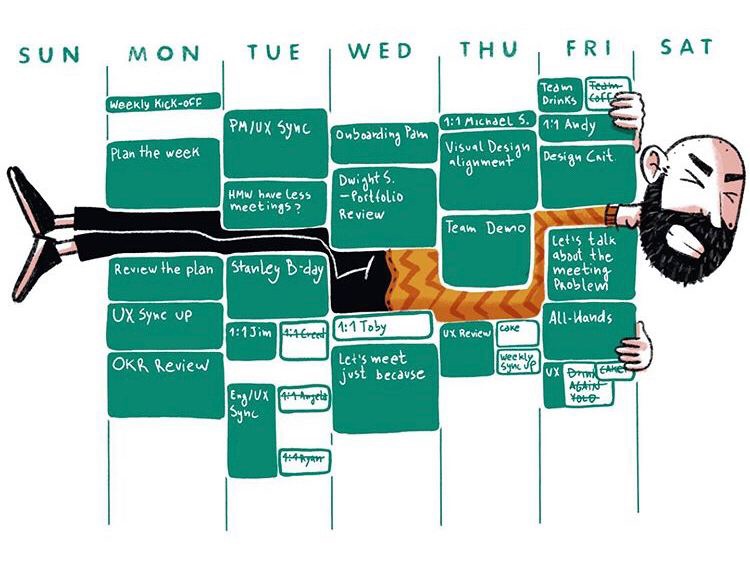 SUN
MON
TUE
WED
THU
FRI
SAT
Weekly Kick-off
Plan the week
Review the plan
UX Sync up
OKR Review
PM/UX Sync
HMW have less
meetings?
Stanley B-day
1:1 Jim
1:1 Creed
Eng/UX
Sync
1:1 Angela
1:1 Ryan
Onboarding Pam
Dwight S.
-Portfolio
Review
1:1 Toby
Let's meet
just because
1:1 Michael S.
Visual Design
alignment
Team Demo
UX Review
cake
Weekly
Sync up
Team
Drinks
Team
Coff
1:1 Andy
Design Crit.
Let's talk
about the
meeting
Problem
All-Hands
UX
Drink
AGAIN
YOLO
CAKE